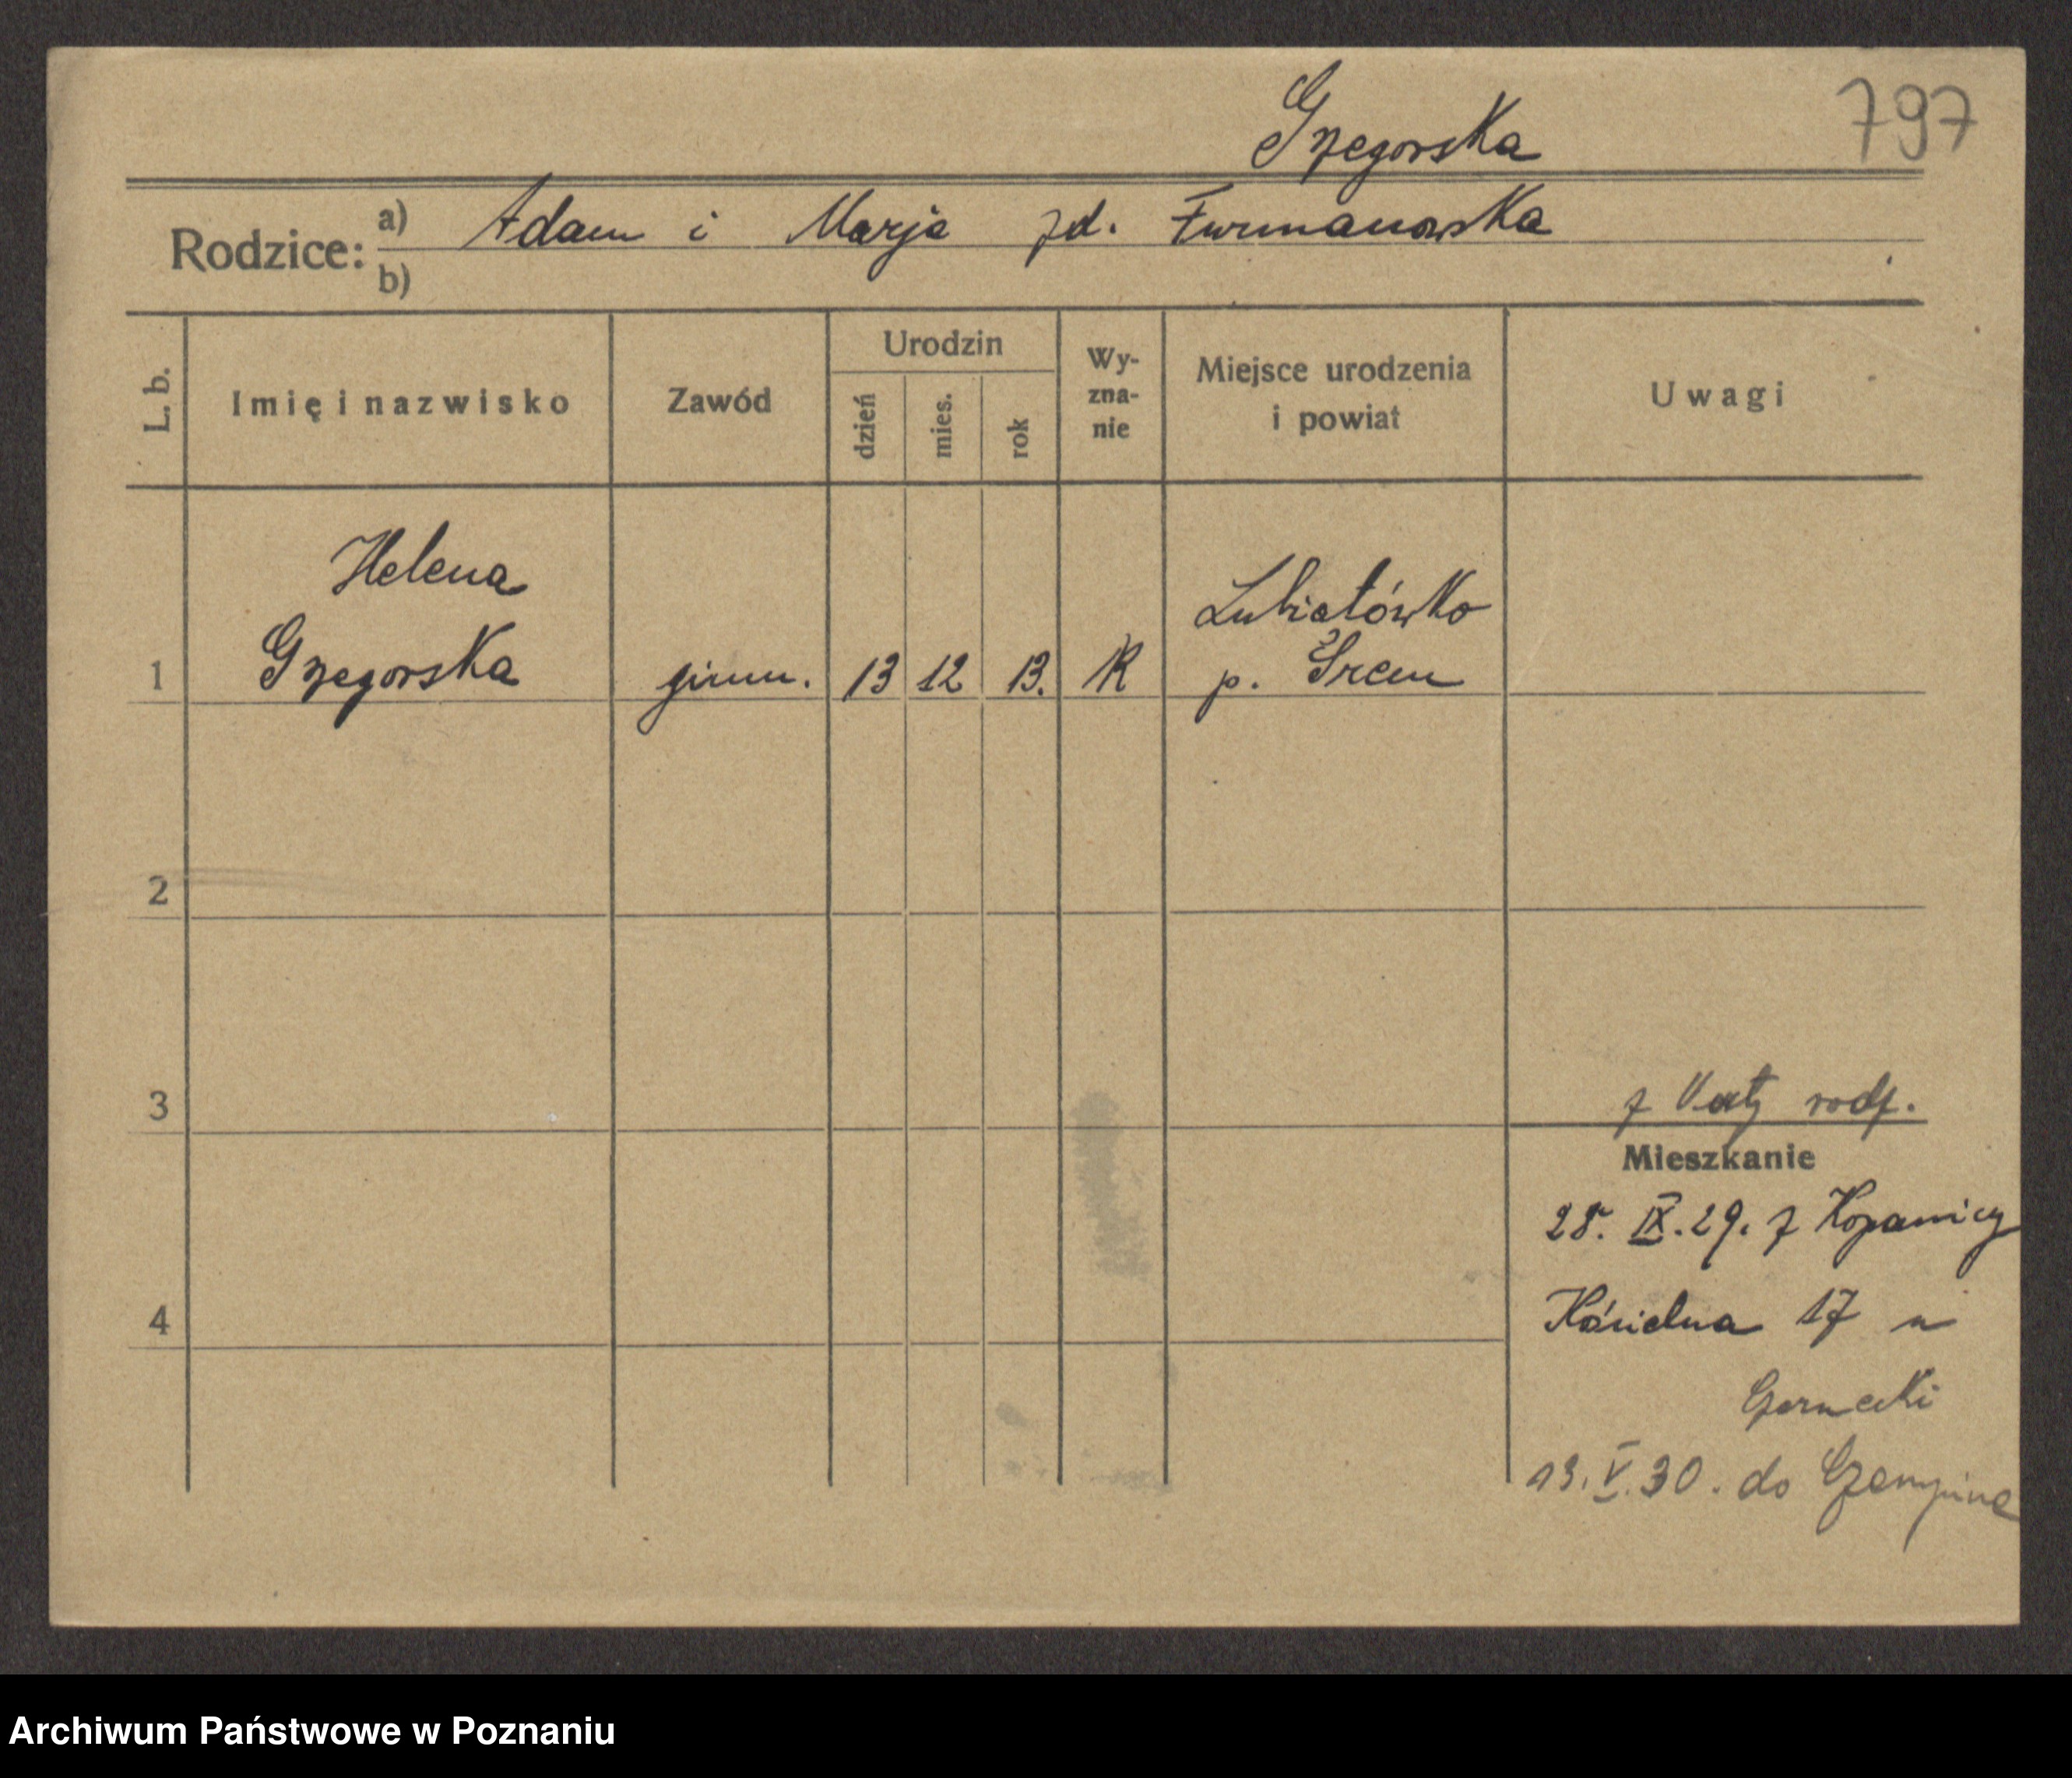 Grzegorska
797
Rodzice: a) Adam i Marja zd. Furmanowska
b)
L. b. Imię i nazwisko Zawód Urodzin dzień mies. rok Wyznanie Miejsce urodzenia i powiat Uwagi
Helena
Grzegorska
1
gimn. 13 12 13. R
Lubiatówko
p. Śrem
2
3
z karty rodz.
Mieszkanie
28. IX. 29. z Kopanicy
4
Kościelna 17 u
Czarnecki
13. V. 30. do Czempinia
Archiwum Państwowe w Poznaniu